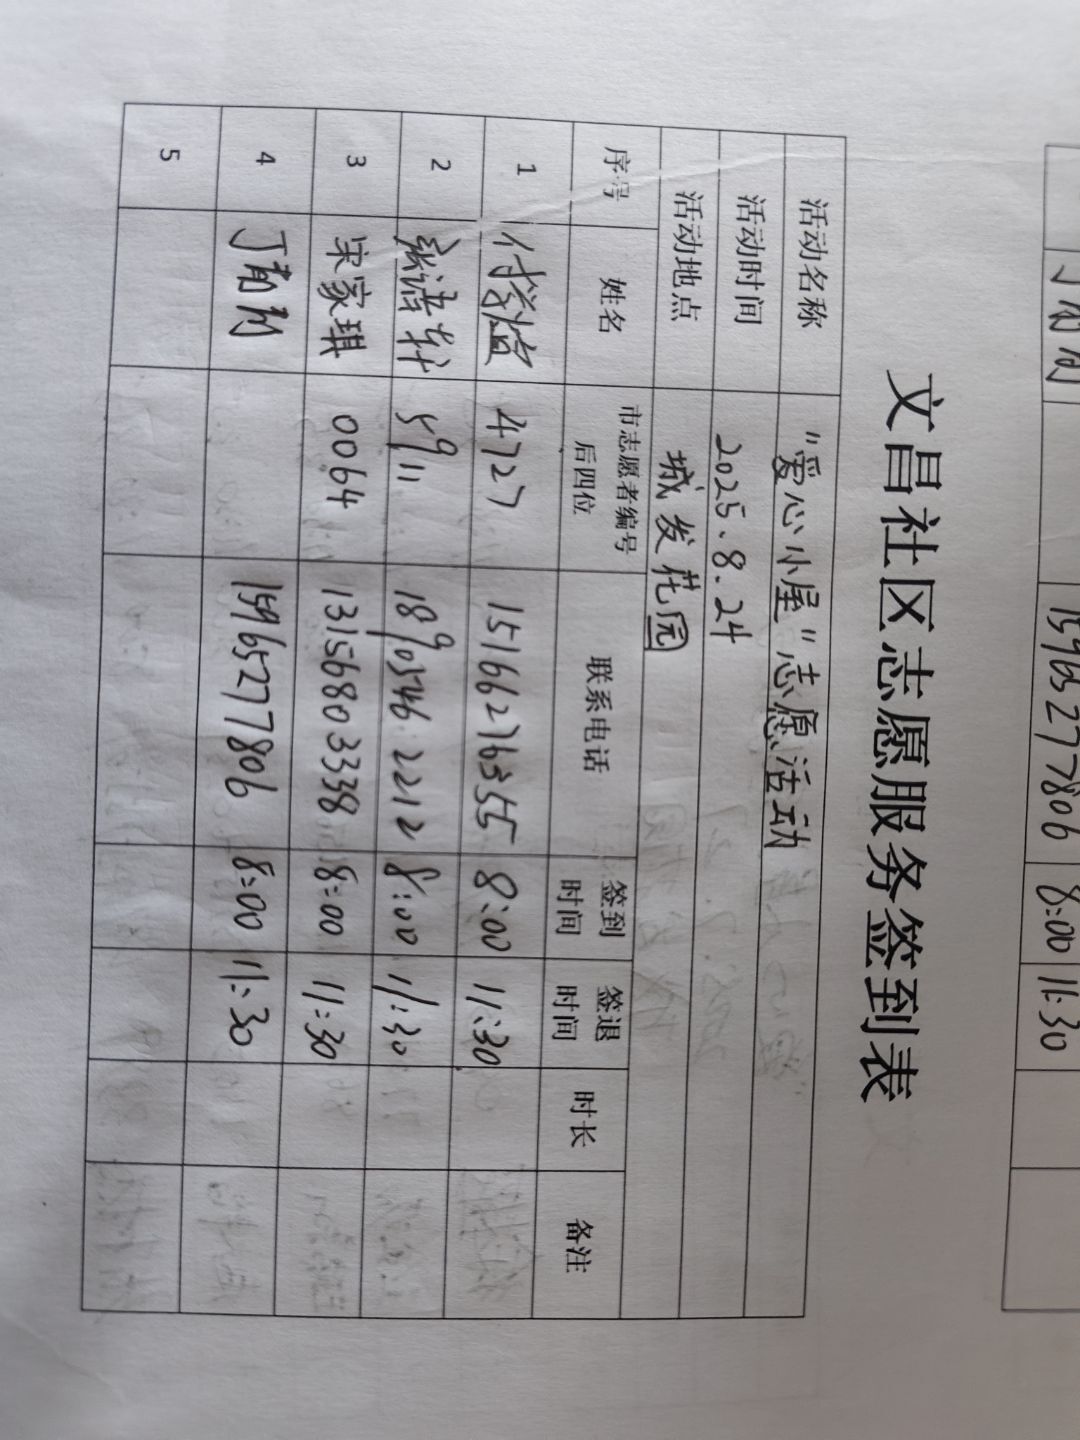 文昌社区志愿服务签到表
活动名称 "爱心小屋"志愿活动
活动时间 2025.8.24
活动地点 城发花园
序号 姓名 市志愿者编号后四位 联系电话 签到时间 签退时间 时长 备注
1 4727 15166276355 8:00 11:30
2 5911 18905462212 8:00 11:30
3 宋家琪 0064 13156803338 8:00 11:30
4 15965277806 8:00 11:30
5
15965277806 8:00 11:30